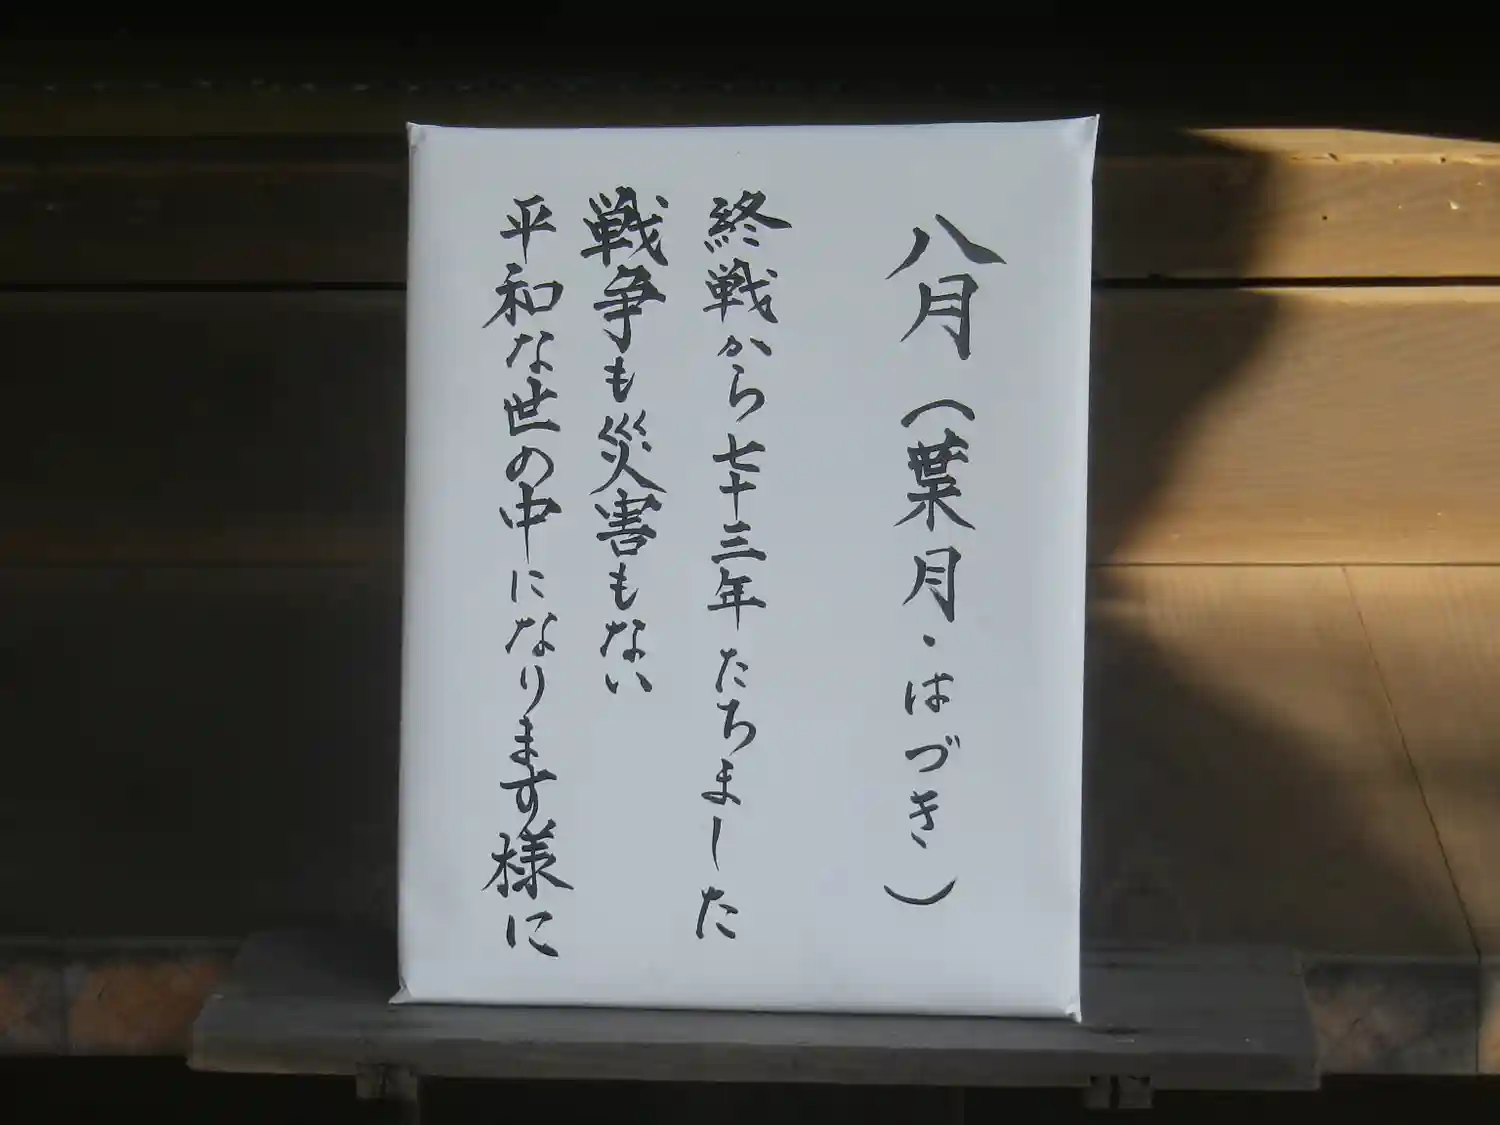 八月(葉月・はづき)
終戦から七十三年たちました
戦争も災害もない
平和な世の中になります様に